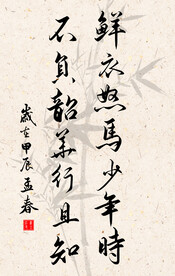 鲜衣怒馬少年時
不負韶華行且知
歲在甲辰孟春